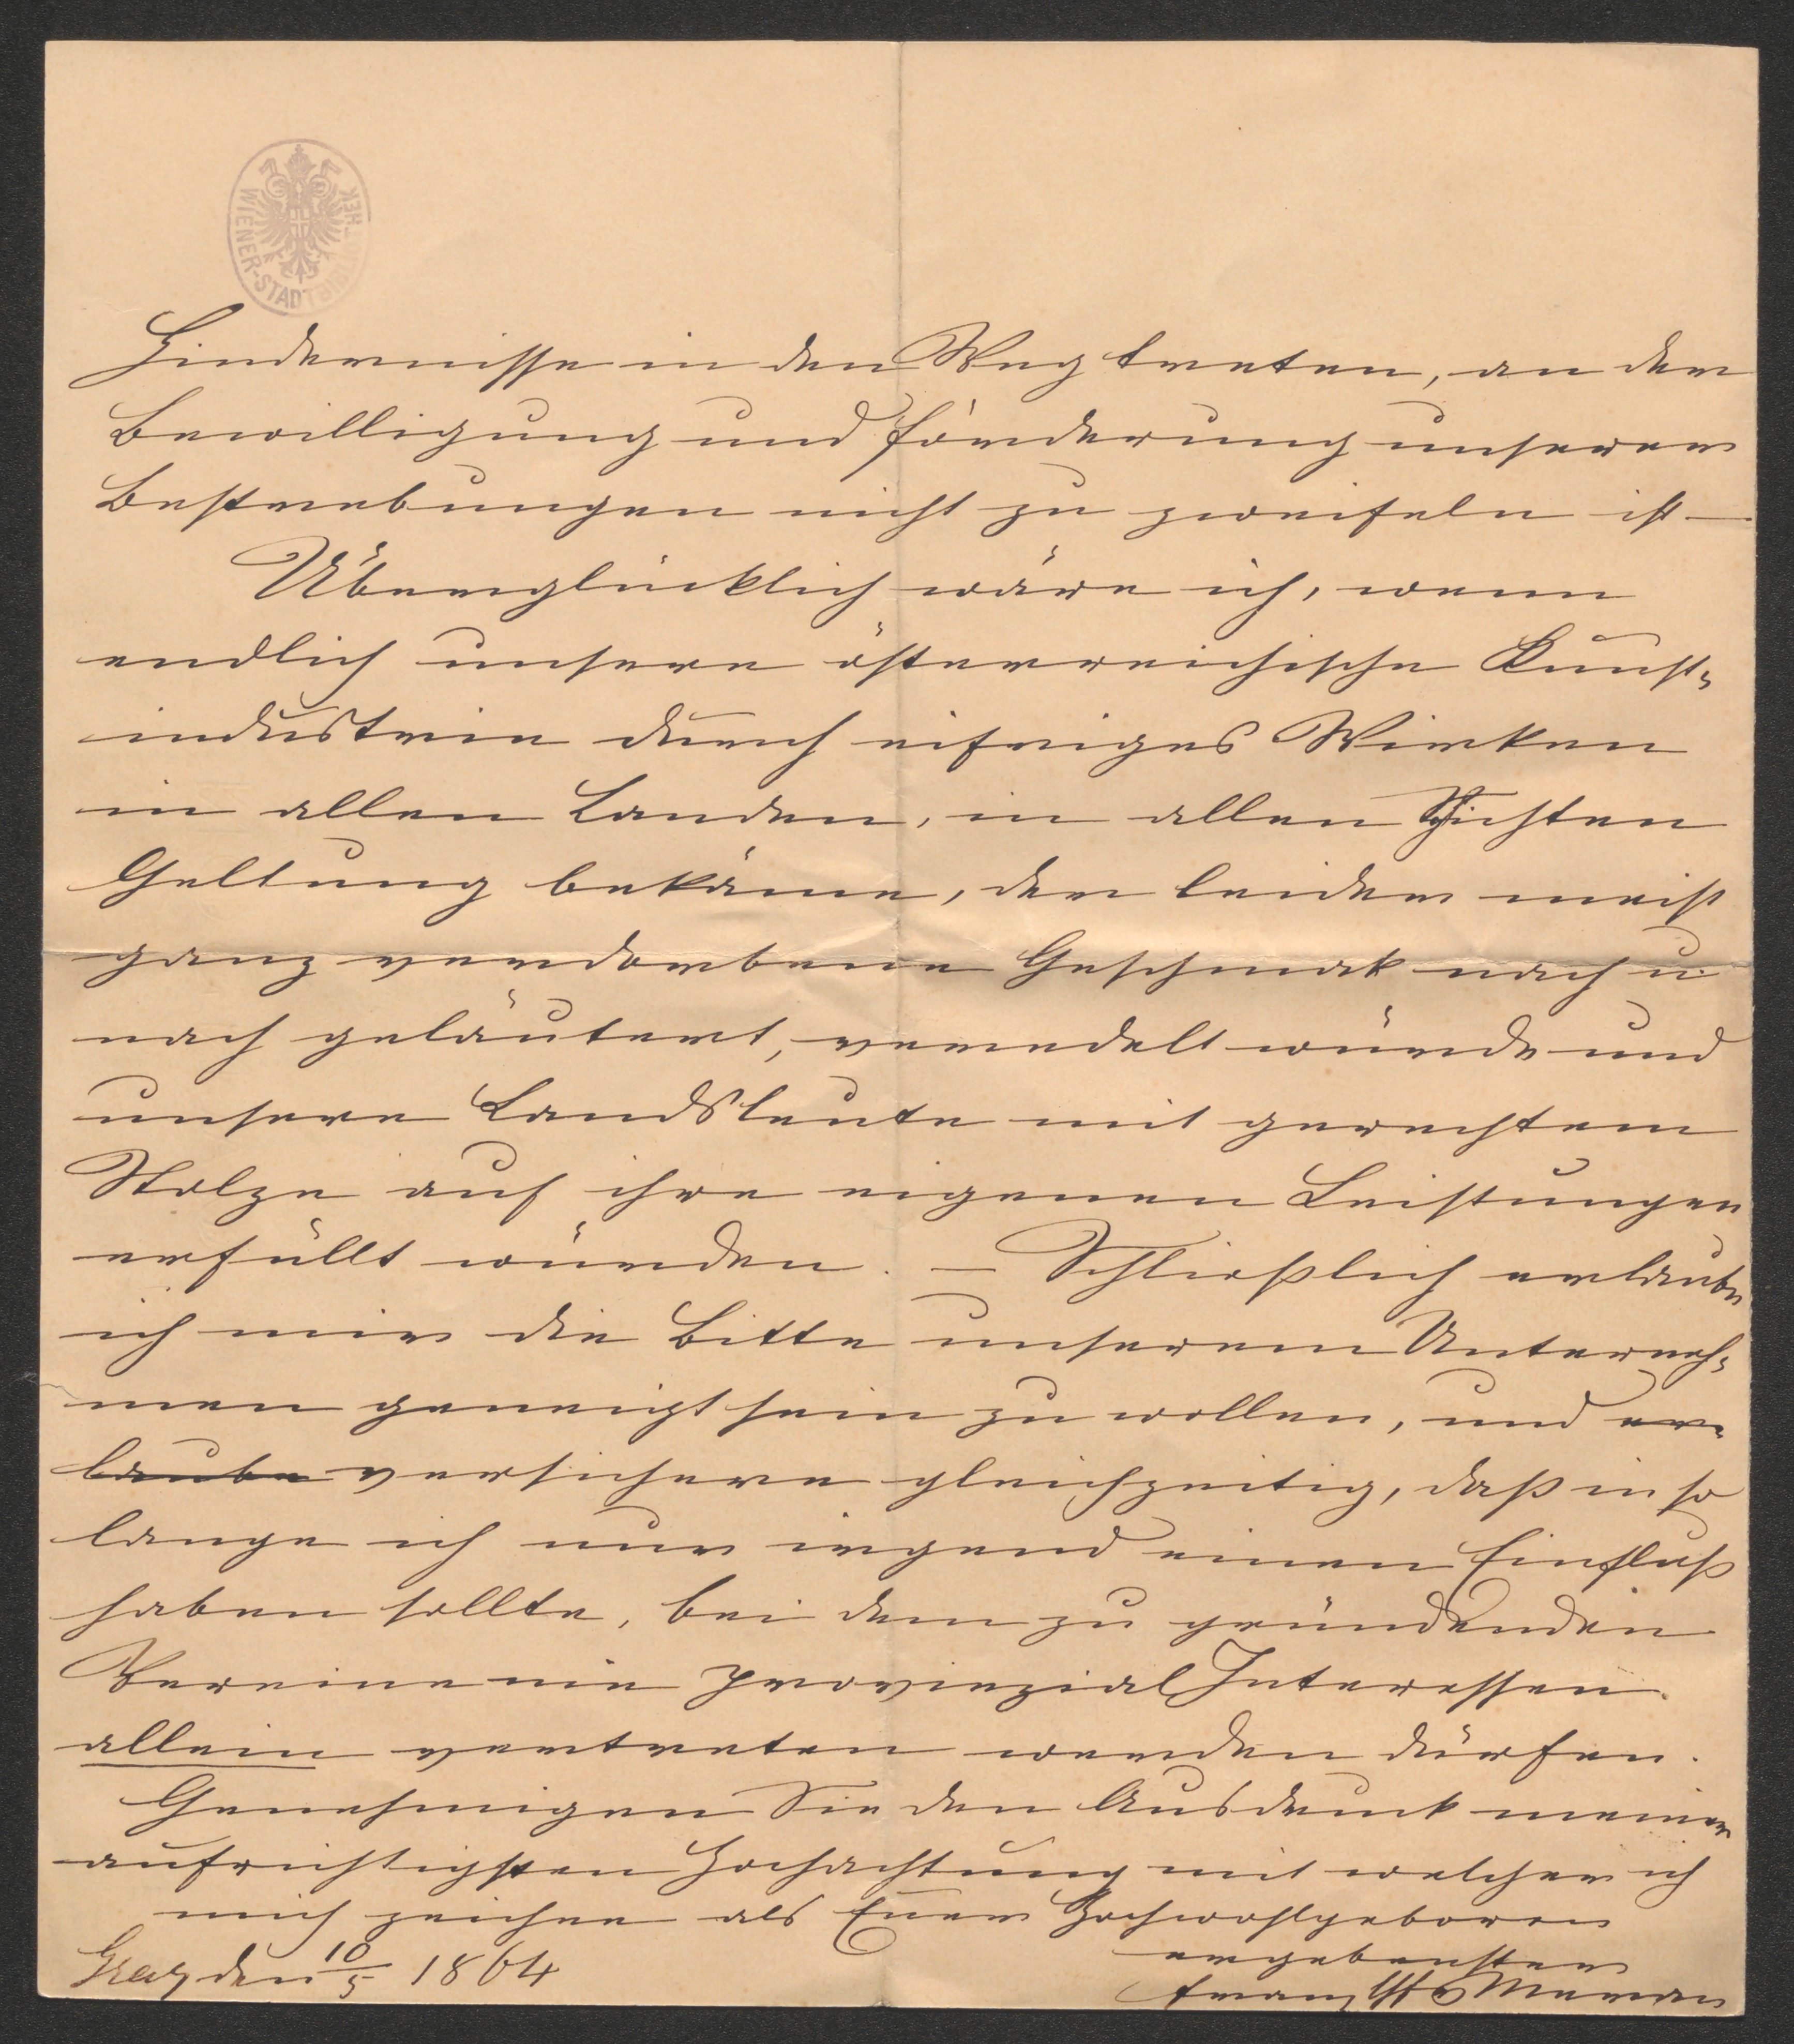 WIENER-STADTBIBLIOTHEK
Hindernisse in den Weg treten, an der
Bewilligung und Förderung unserer
Bestrebungen nicht zu zweifeln ist —
Überglücklich wäre ich, wenn
endlich unsere österreichische Kunst-
industrie durch eifriges Wirken
in allen Landen, in allen Schichten
Geltung bekäme, der leider meist
ganz verdorbene Geschmak nach u
nach geläutert, veredelt würde und
unsere Landsleute mit gerechtem
Stolze auf ihre eigenen Leistungen
erfüllt würden. — Schließlich erlaube
ich mir die Bitte unserem Unterneh-
men geneigt sein zu wollen, und er-
laube versichere gleichzeitig, daß in so
lange ich nur irgend einen Einfluß
haben sollte, bei dem zu gründenden
Vereine nie Provinzial Interessen
allein vertreten werden dürfen.
Genehmigen Sie den Ausdruck meiner
aufrichtigsten Hochachtung mit welcher ich
mich zeichne als Euer Hochwohlgeboren
ergebenster
Graz den 10/5 1864
Franz Meran